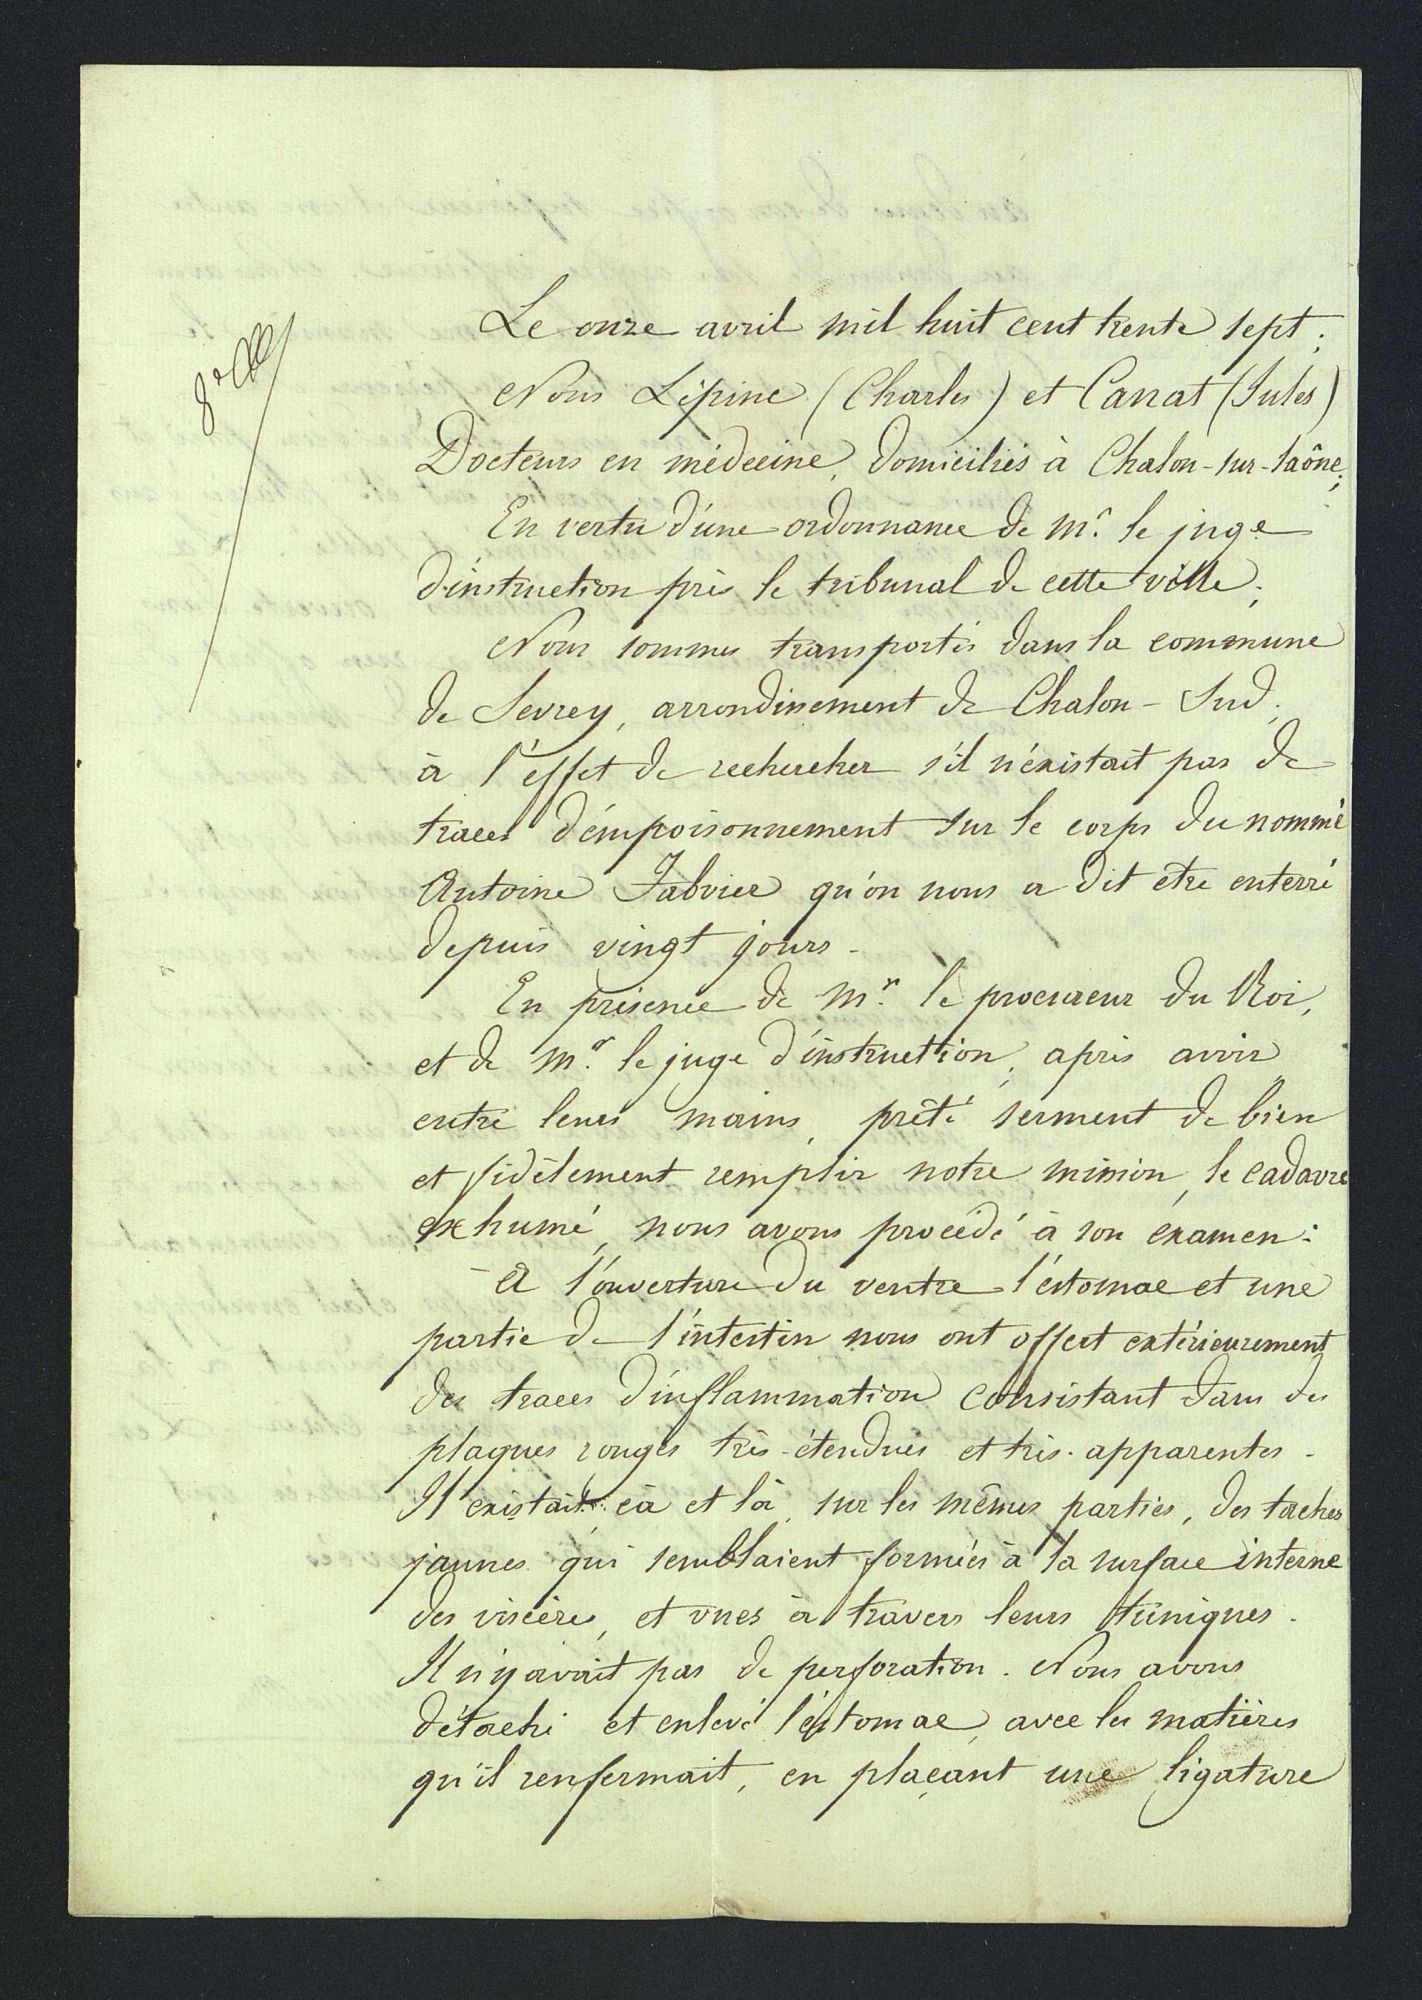 Le onze avril mil huit cent trente sept ;
Nous Lépine (Charles) et Canat (Jules)
Docteurs en médecine, domiciliés à Chalon-sur-Saône ;
En vertu d'une ordonnance de Mr. le juge
d'instruction près le tribunal de cette ville ;
Nous sommes transportés dans la commune
de Sevrey, arrondissement de Chalon-Sud,
à l'effet de rechercher s'il n'éxistait pas de
traces d'émpoisonnement sur le corps du nommé
Antoine Jabvier qu'on nous a dit etre enterré
depuis vingt jours.
En présence de Mr. le procureur du Roi,
et de Mr. le juge d'instruction, après avoir
entre leurs mains, prêté serment de bien
et fidèlement remplir notre mission, le cadavre
exhumé, nous avons procédé à son éxamen :
- A l'ouverture du ventre l'éstomac et une
partie de l'intestin nous ont offert extérieurement
des traces d'inflammation consistant dans des
plaques rouges très-étendues et très-apparentes.
Il existait çà et là, sur les mêmes parties, des taches
jaunes qui semblaient formées à la surface interne
des viscères, et vues à travers leurs tuniques.
Il n'y avait pas de perforation. Nous avons
détaché et enlevé l'éstomac, avec les matières
qu'il renfermait, en plaçant une ligature